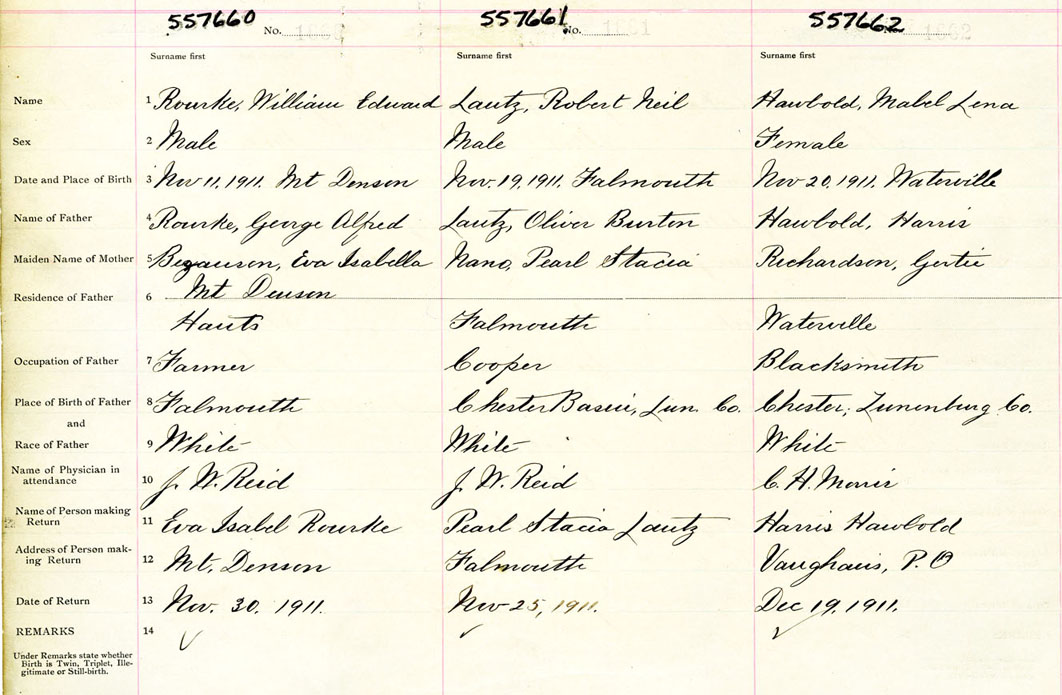 557660 557661 557662
No. No. 1661 1662
Surname first Surname first Surname first
Name 1 Rourke, William Edward Lautz, Robert Neil Hawbold, Mabel Lena
Sex 2 Male Male Female
Date and Place of Birth 3 Nov 11, 1911. Mt Denson Nov. 19, 1911. Falmouth Nov 20, 1911. Waterville
Name of Father 4 Rourke, George Alfred Lautz, Oliver Burton Hawbold, Harris
Maiden Name of Mother 5 Eva Isabella Pearl Stacia Richardson, Gertie
Mt Denson
Residence of Father 6
Hants Falmouth Waterville
Occupation of Father 7 Farmer Cooper Blacksmith
Place of Birth of Father 8 Falmouth Chester Basin, Lun. Co. Chester, Lunenburg Co.
and
Race of Father 9 White White White
Name of Physician in
attendance 10 J. W. Reid J. W. Reid C. H. Morris
Name of Person making
Return 11 Eva Isabel Rourke Pearl Stacia Lautz Harris Hawbold
Address of Person mak-
ing Return 12 Mt. Denson Falmouth Vaughans, P.O
Date of Return 13 Nov. 30. 1911. Nov 25, 1911. Dec 19, 1911.
REMARKS 14
Under Remarks state whether
Birth is Twin, Triplet, Ille-
gitimate or Still-birth.